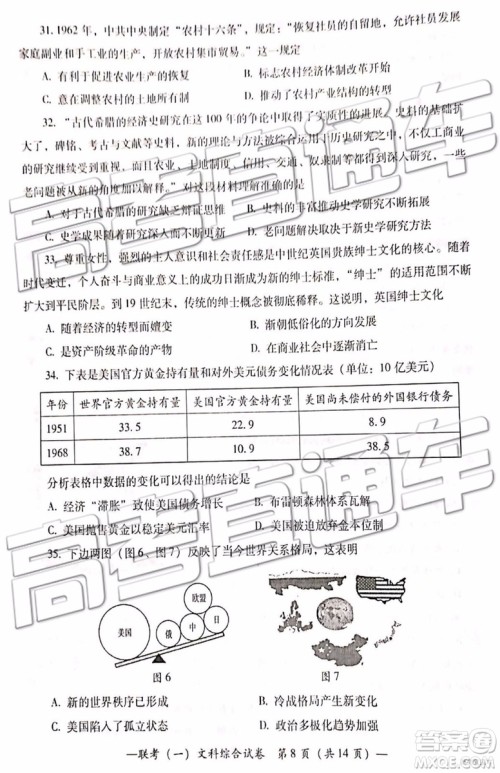 31. 1962 年，中共中央制定“农村十六条”，规定：“恢复社员的自留地，允许社员发展
家庭副业和手工业的生产，开放农村集市贸易。”这一规定
A. 有利于促进农业生产的恢复 B. 标志农村经济体制改革开始
C. 意在调整农村的土地所有制 D. 推动了农村产业结构的转型
32. “古代希腊的经济史研究在这 100 年的争论中取得了实质性的进展，史料的基础扩
大了，碑铭、考古与文献等史料，新的理论与方法被综合运用于历史研究中，一些具体问题
的研究继续受到重视。政制、土地制度、信用、交通、奴隶制等得到深入研究，一些
老问题被从新的角度加以解释。”这段材料理解准确的是
A. 对于古代希腊的研究缺乏辩证思维 B. 史料的丰富推动史学研究不断拓展
C. 史学成果离不开研究者的深入研究 D. 老问题解决取决于新史学研究方法
33. 尊重女性，强烈的主人意识和社会责任感是中世纪英国贵族绅士文化的核心。随着
时代变迁，个人奋斗与商业意义上的成功日渐成为新的绅士标准，“绅士”的适用范围不断
扩大到平民阶层。到 19 世纪末，传统的绅士概念被彻底稀释。这说明，英国绅士文化
A. 随着经济的转型而嬗变 B. 渐朝低俗化的方向发展
C. 是资产阶级革命的产物 D. 在商业社会中逐渐消亡
34. 下表是美国官方黄金持有量和对外美元债务变化情况表（单位：10 亿美元）
年份 世界官方黄金持有量 美国官方黄金持有量 美国尚未偿付的外国银行债务
1951 33.5 22.9 8.9
1968 38.7 10.9 38.5
分析表格中数据的变化可以得出的结论是
A. 经济“滞胀”致使美国债务增长 B. 布雷顿森林体系瓦解
C. 美国抛售黄金以稳定美元汇率 D. 美国被迫放弃金本位制
35. 下边两图（图 6、图 7）反映了当今世界关系格局，这表明
美国 俄 欧盟 中 日
图 6 图 7
A. 新的世界秩序已形成 B. 冷战格局产生重大影响
C. 美国陷入了孤立状态 D. 政治多极化趋势在加强
—联考（一）文科综合试卷 第 8 页（共 14 页）—
高考直通车